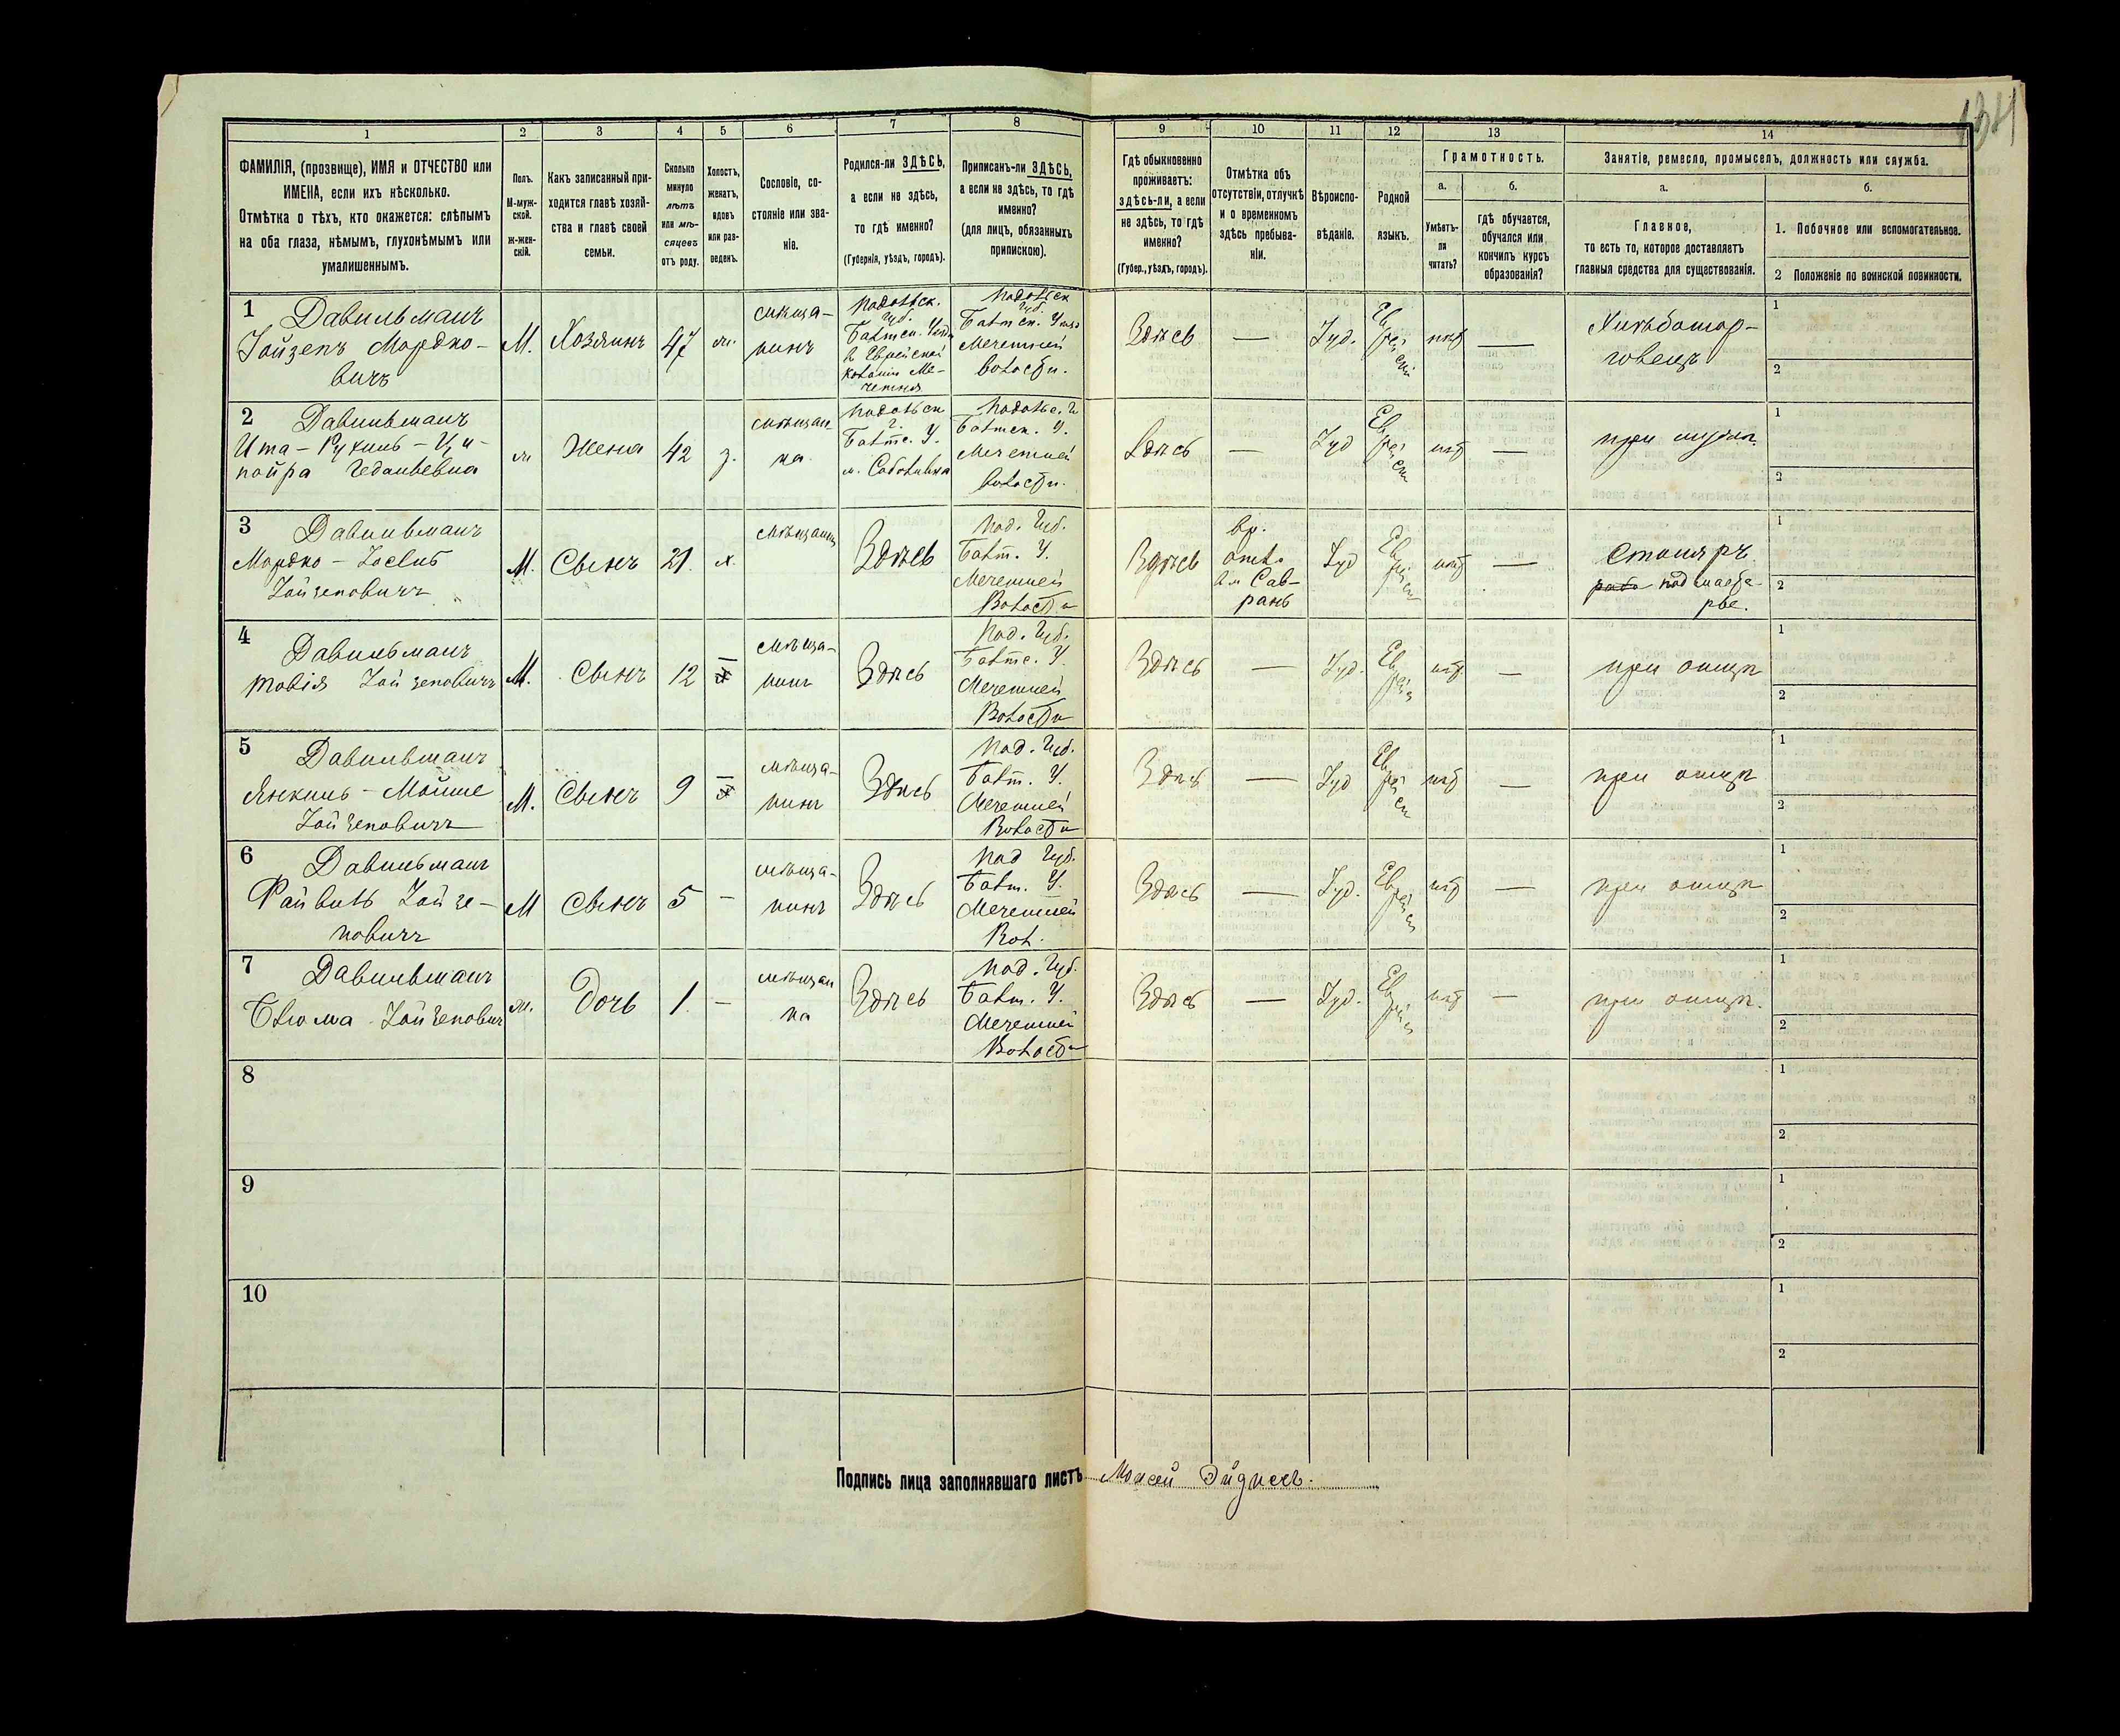 134
1
2
3
4
5
6
7
8
9
10
11
12
13
14
ФАМИЛІЯ, (прозвище), ИМЯ и ОТЧЕСТВО или
ИМЕНА, если ихъ нѣсколько.
Отмѣтка о тѣхъ, кто окажется: слѣпымъ
на оба глаза, нѣмымъ, глухонѣмымъ или
умалишеннымъ.
Полъ.
М-муж-
ской.
ж-жен-
скій.
Какъ записанный при-
ходится главѣ хозяй-
ства и главѣ своей
семьи.
Сколько
минуло
лѣтъ
или мѣ-
сяцевъ
отъ роду.
Холостъ,
женатъ,
вдовъ
или раз-
веденъ.
Сословіе, со-
стояніе или зва-
ніе.
Родился-ли ЗДѢСЬ,
а если не здѣсь,
то гдѣ именно?
(Губернія, уѣздъ, городъ).
Приписанъ-ли ЗДѢСЬ,
а если не здѣсь, то гдѣ
именно?
(для лицъ, обязанныхъ
припискою).
Гдѣ обыкновенно
проживаетъ:
здѣсь-ли, а если
не здѣсь, то гдѣ
именно?
(Губер., уѣздъ, городъ).
Отмѣтка объ
отсутствіи, отлучкѣ
и о временномъ
здѣсь пребыва-
ніи.
Вѣроиспо-
вѣданіе.
Родной
языкъ.
Грамотность.
а.
Умѣетъ-
ли
читать?
б.
гдѣ обучается,
обучался или
кончилъ курсъ
образованія?
Занятіе, ремесло, промыселъ, должность или служба.
а.
Главное,
то есть то, которое доставляетъ
главныя средства для существованія.
б.
1. Побочное или вспомогательное.
2 Положеніе по воинской повинности.
1
Давильманъ
Зайзепъ Мордко-
вичъ
М.
Хозяинъ
47
ж.
мѣща-
нинъ
Подольск.
Губ.
Балтск. Уѣзд
в Еврейской
колоніи Ме-
четня
Подольск
Губ.
Балтск. Уѣзд
Мечетней
волости.
Здѣсь
—
Іуд.
Еврейскій
нѣт
—
Хлѣботор-
говецъ
1
2
2
Давильманъ
Ита-Рухль-Ци-
пойра Гедальевна
ж
Жена
42
з.
мѣщан-
ка
Подольск
г.
Балтс. У.
м. Саботиівка
Подольс. Г
Балтск. У.
Мечетней
волости.
Здѣсь
—
Іуд
Еврейск
нѣт
—
при мужѣ
1
2
3
Давильманъ
Мордко-Іосиѳ
Зайзеповичъ
М.
Сынъ
21.
х.
мѣщанин
Здѣсь
Под. Губ.
Балт. У.
Мечетней
Волости
Здѣсь
вр.
отл.
в м Сав-
рань
Іуд
Еврейск
нѣт
—
Столяръ
под масте-
рье.
1
2
4
Давильманъ
Товія Зайзеповичъ
М.
Сынъ
12
—
мѣща-
нинъ
Здѣсь
Под. Губ.
Балтс. У.
Мечетней
Волости
Здѣсь
—
Іуд.
Еврейск
нѣт.
—
при отцѣ
1
2
5
Давильманъ
Янкель-Мойше
Зайзеповичъ
М.
Сынъ
9
—
мѣща-
нинъ
Здѣсь
Под. Губ.
Балт. У.
Мечетней
Волости
Здѣсь
—
Іуд
Еврейск
нѣт
—
при отцѣ
1
2
6
Давильманъ
Файвель Зайзе-
повичъ
М
Сынъ
5
—
мѣща-
нинъ
Здѣсь
Под Губ.
Балт. У.
Мечетней
Вол.
Здѣсь
—
Іуд.
Еврейск
нѣт
—
при отцѣ
1
2
7
Давильманъ
Блюма Зайзепович
ж.
Дочь
1.
—
мѣщан
ка
Здѣсь
Под. Губ.
Балт. У.
Мечетней
Волости
Здѣсь
—
Іуд.
Еврейск
нѣт
—
при отцѣ.
1
2
8
1
2
9
1
2
10
1
2
Подпись лица заполнявшаго листъ Моисей